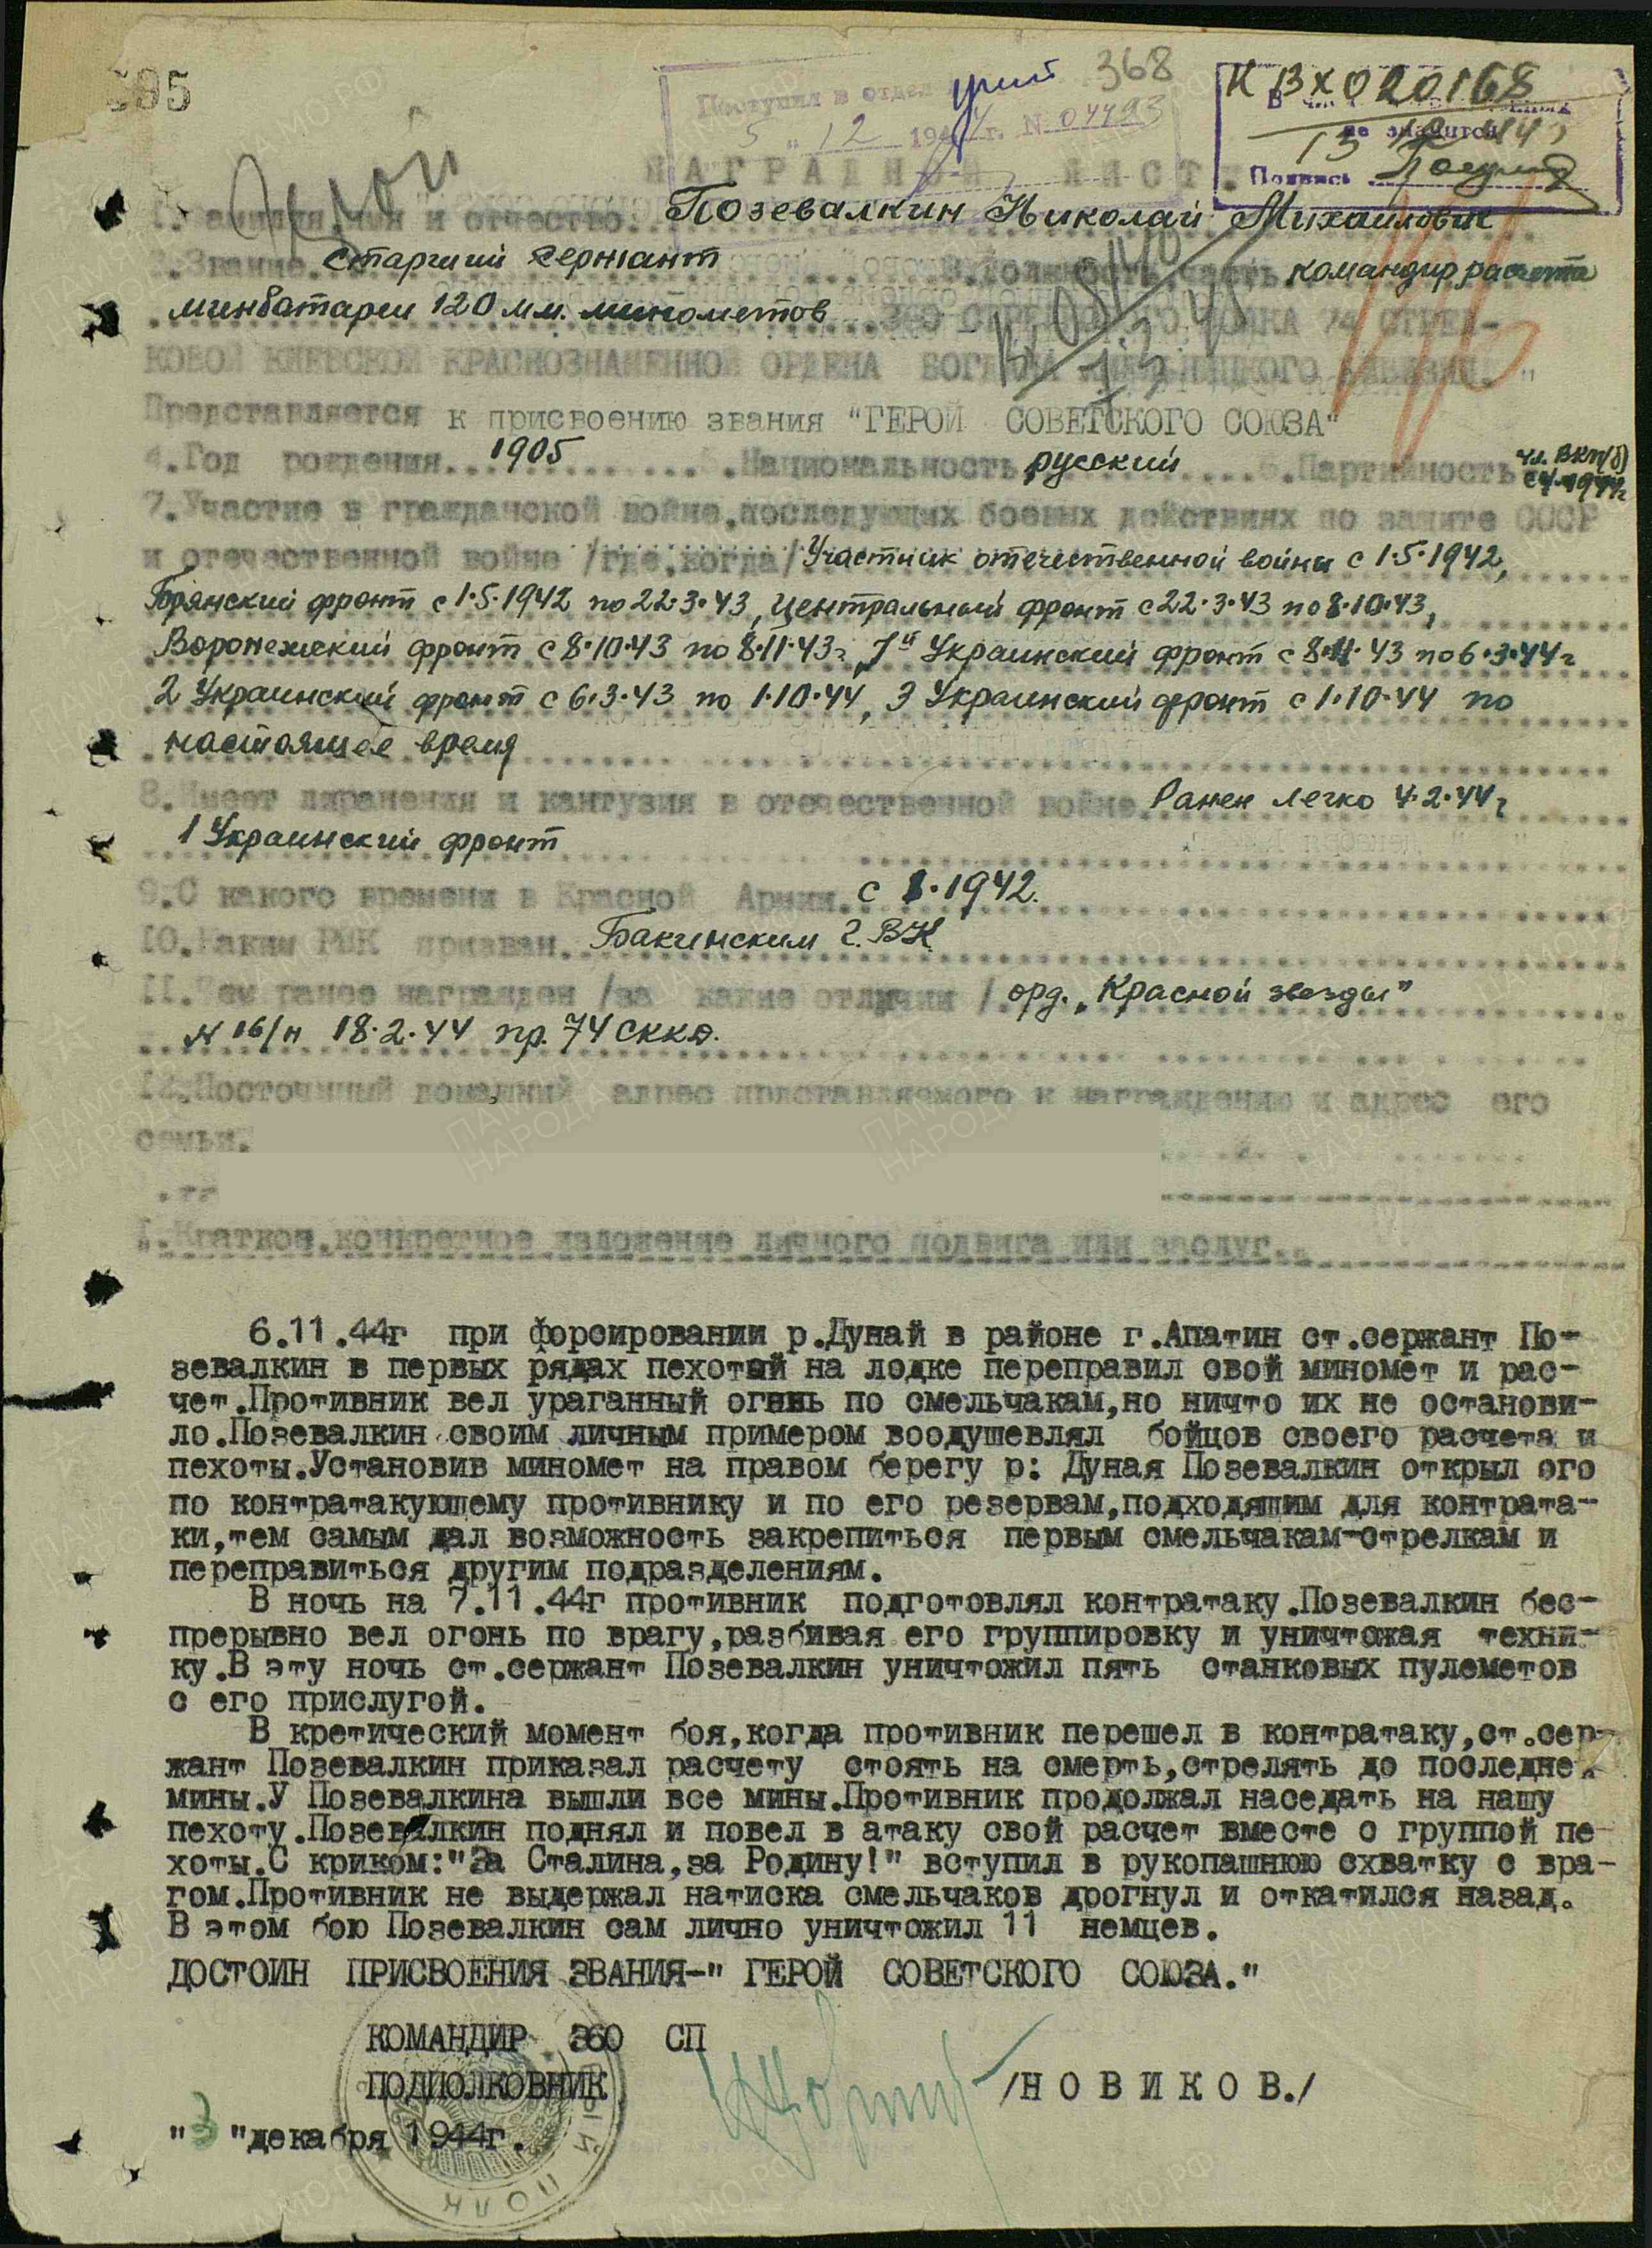 595
368
Поступил в отдел
5 " 12 1944г. N 04493
К ВХ 020168
не значится
Подпись
НАГРАДНОЙ ЛИСТ.
1.Фамилия,имя и отчество Позевалкин Николай Михайлович
2.Звание. Старший сержант 3.Должность,часть командир расчета
минбатареи 120 мм. минометов 360 СТРЕЛКОВОГО ПОЛКА 74 СТРЕЛ-
КОВОЙ КИЕВСКОЙ КРАСНОЗНАМЕННОЙ ОРДЕНА БОГДАНА ХМЕЛЬНИЦКОГО ДИВИЗИИ. "
Представляется к присвоению звания "ГЕРОЙ СОВЕТСКОГО СОЮЗА"
4.Год рождения 1905 5.Национальность русский 6.Партийность чл. ВКП(б)
с 1944г
7.Участие в гражданской войне,последующих боевых действиях по защите СССР
и отечественной войне /где,когда/ Участник отечественной войны с 1.5.1942,
Брянский фронт с 1.5.1942 по 22.3.43, Центральный фронт с 22.3.43 по 8.10.43,
Воронежский фронт с 8.10.43 по 8.11.43г, 1й Украинский фронт с 8.11.43 по 6.3.44г
2 Украинский фронт с 6.3.43 по 1.10.44, 3 Украинский фронт с 1.10.44 по
настоящее время
8.Имеет ли ранения и кантузия в отечественной войне Ранен легко 4.2.44г
1 Украинский фронт
9.С какого времени в Красной Армии. с 1.1942.
10.Каким РВК призван. Бакинским Г.ВК
11.Чем ранее награжден /за какие отличия/ орд. "Красной звезды"
N 16/н 18.2.44 пр. 74 скка.
12.Постоянный домашний адрес представляемого к награждению и адрес его
семьи.
1.Краткое,конкретное изложение личного подвига или заслуг.
6.11.44г при форсировании р.Дунай в районе г.Апатин ст.сержант По-
зевалкин в первых рядах пехотый на лодке переправил свой миномет и рас-
чет.Противник вел ураганный огень по смельчакам,но ничто их не останови-
ло.Позевалкин своим личным примером воодушевлял бойцов своего расчета и
пехоты.Установив миномет на правом берегу р: Дуная Позевалкин открыл ого
по контратакующему противнику и по его резервам,подходящим для контрата-
ки,тем самым дал возможность закрепиться первым смельчакам-стрелкам и
переправиться другим подразделениям.
В ночь на 7.11.44г противник подготовлял контратаку.Позевалкин бес-
прерывно вел огонь по врагу,разбивая его группировку и уничтожая техни-
ку.В эту ночь ст.сержант Позевалкин уничтожил пять станковых пулеметов
с его прислугой.
В кретический момент боя,когда противник перешел в контратаку,ст.сер-
жант Позевалкин приказал расчету стоять на смерть,стрелять до последней
мины.У Позевалкина вышли все мины.Противник продолжал наседать на нашу
пехоту.Позевалкин поднял и повел в атаку свой расчет вместе с группой пе-
хоты.С криком:"За Сталина,за Родину!" вступил в рукопашнюю схватку с вра-
гом.Противник не выдержал натиска смельчаков дрогнул и откатился назад.
В этом бою Позевалкин сам лично уничтожил 11 немцев.
ДОСТОИН ПРИСВОЕНИЯ ЗВАНИЯ-" ГЕРОЙ СОВЕТСКОГО СОЮЗА."
КОМАНДИР 360 СП
ПОДПОЛКОВНИК /Н О В И К О В./
" 3 "декабря 1944г.